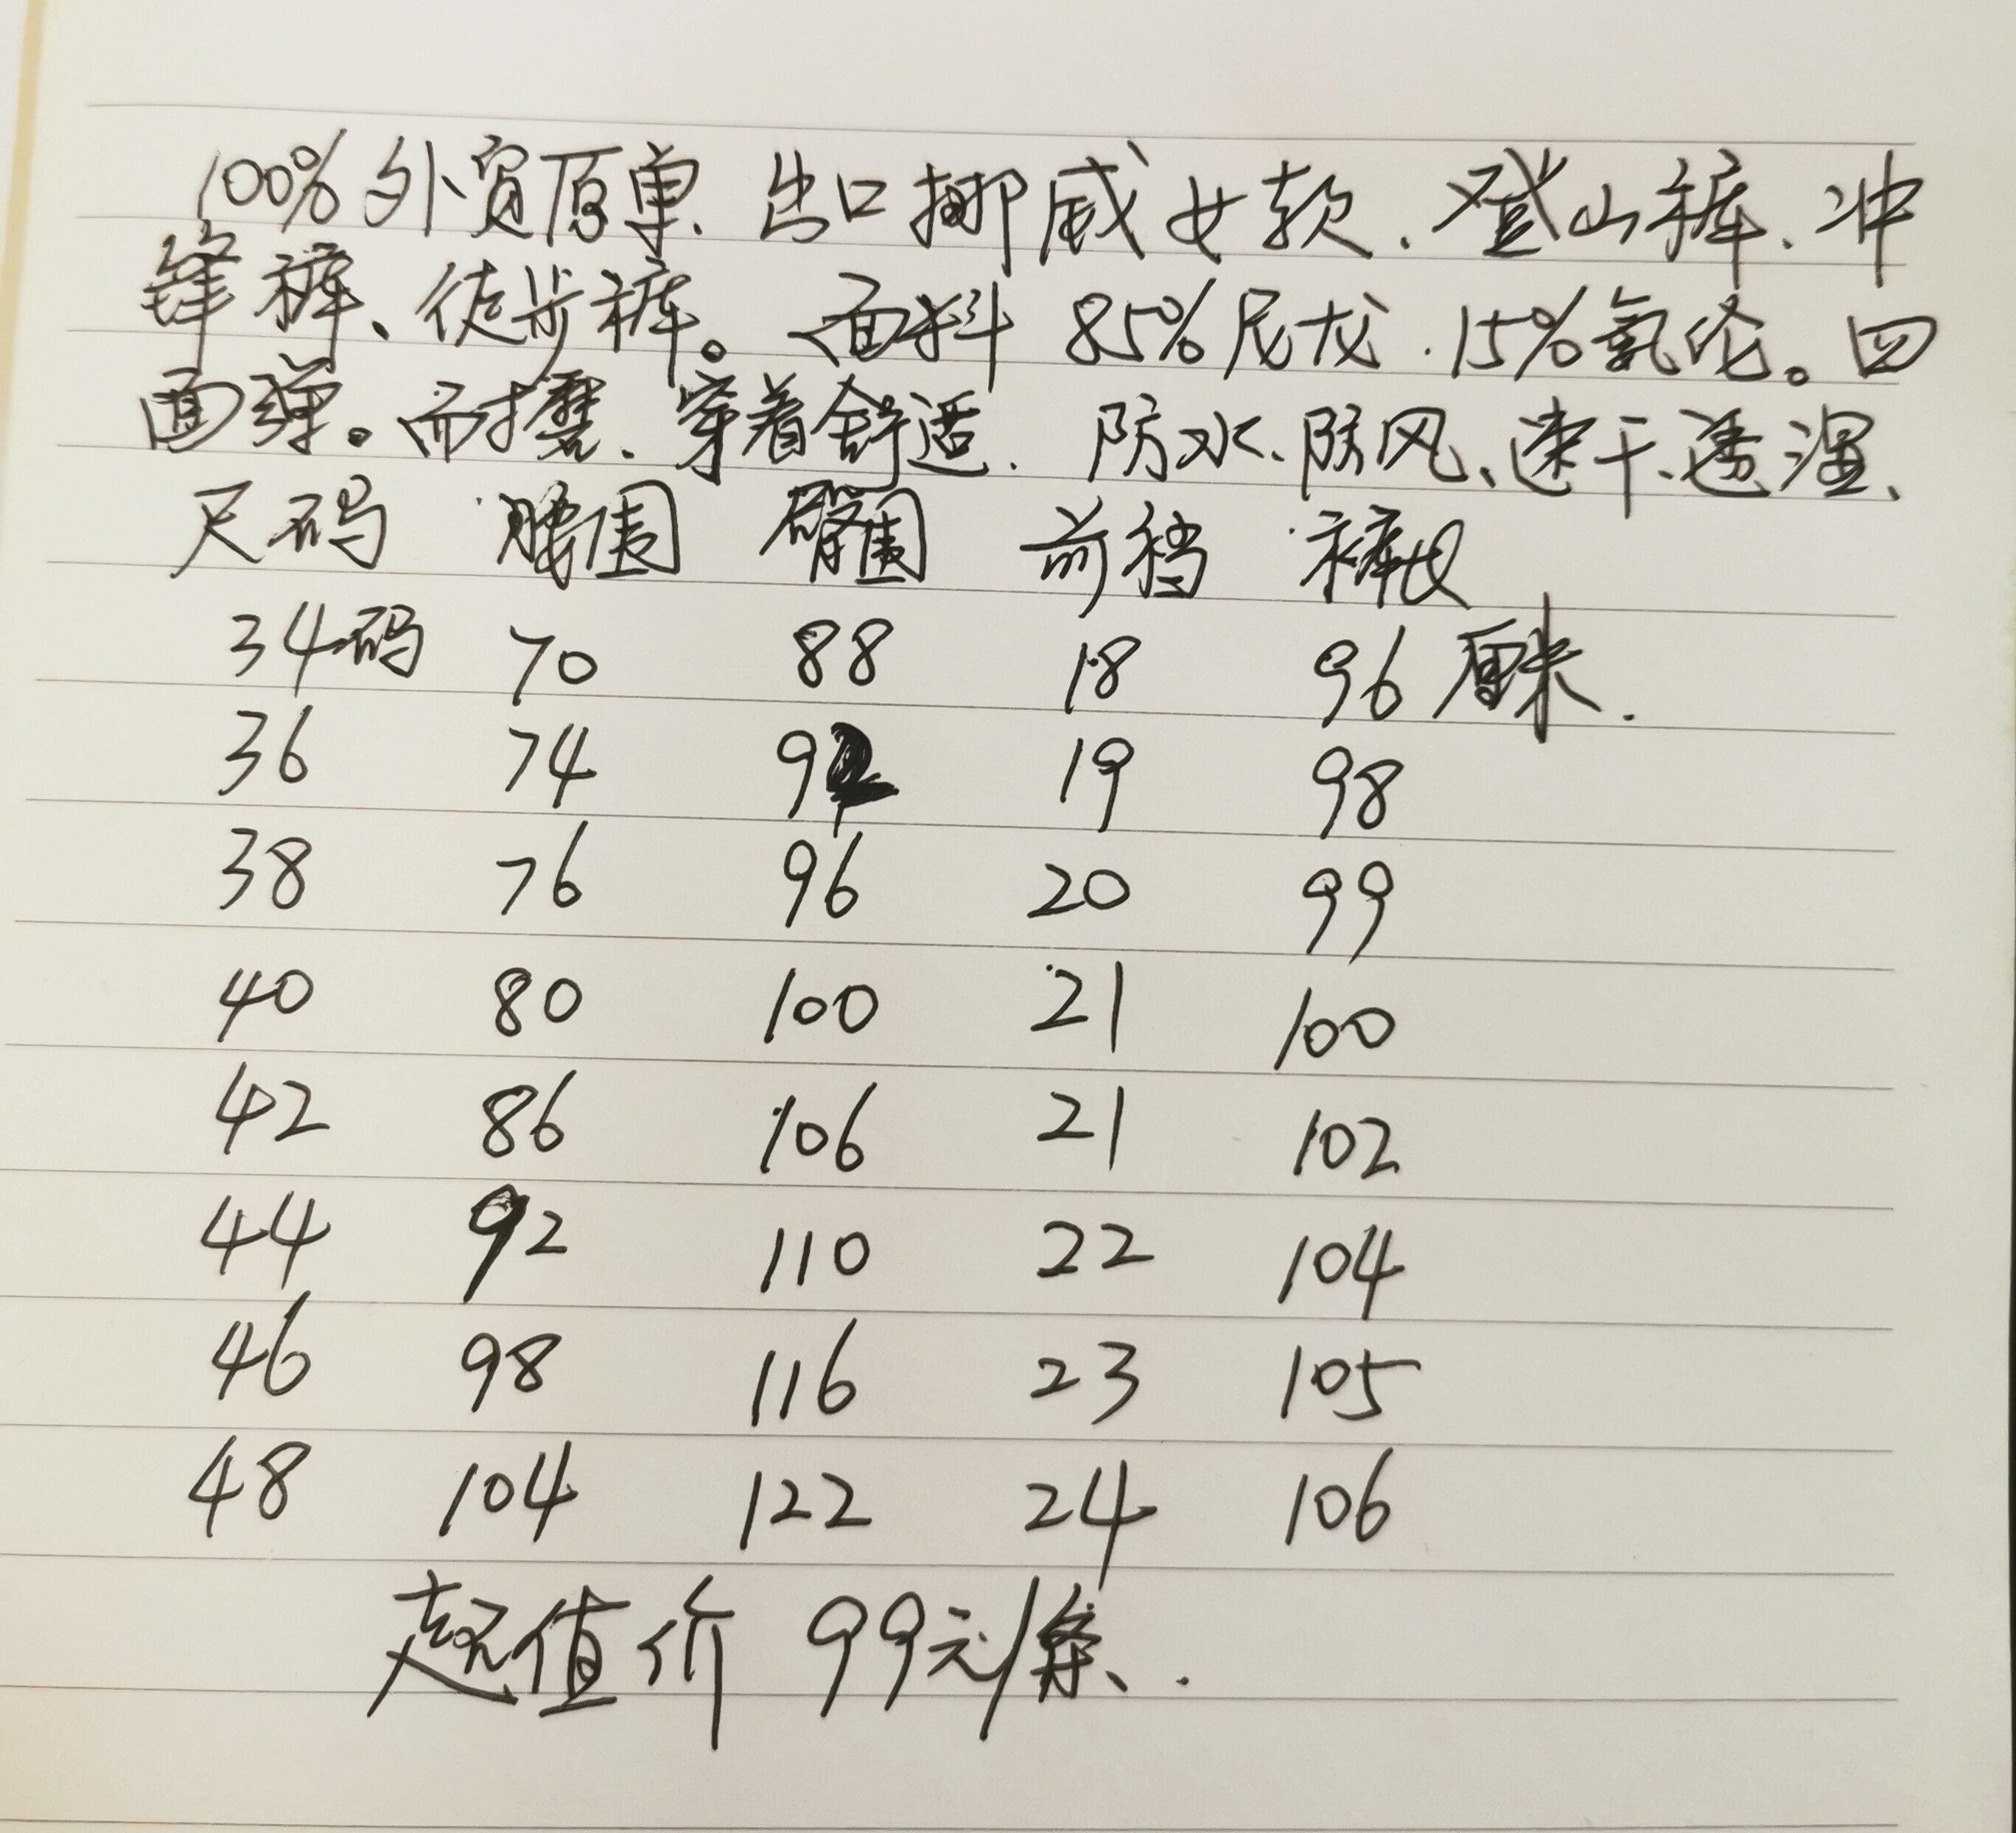 100%外贸原单、出口挪威女款、登山裤、冲
锋裤、徒步裤。面料85%尼龙.15%氨纶。四
面弹。耐磨、穿着舒适.防水、防风、速干、透湿、
尺码 腰围 臀围 前裆 裤长
34码 70 88 18 96厘米.
36 74 92 19 98
38 76 96 20 99
40 80 100 21 100
42 86 106 21 102
44 92 110 22 104
46 98 116 23 105
48 104 122 24 106
超值价 99元/条、.